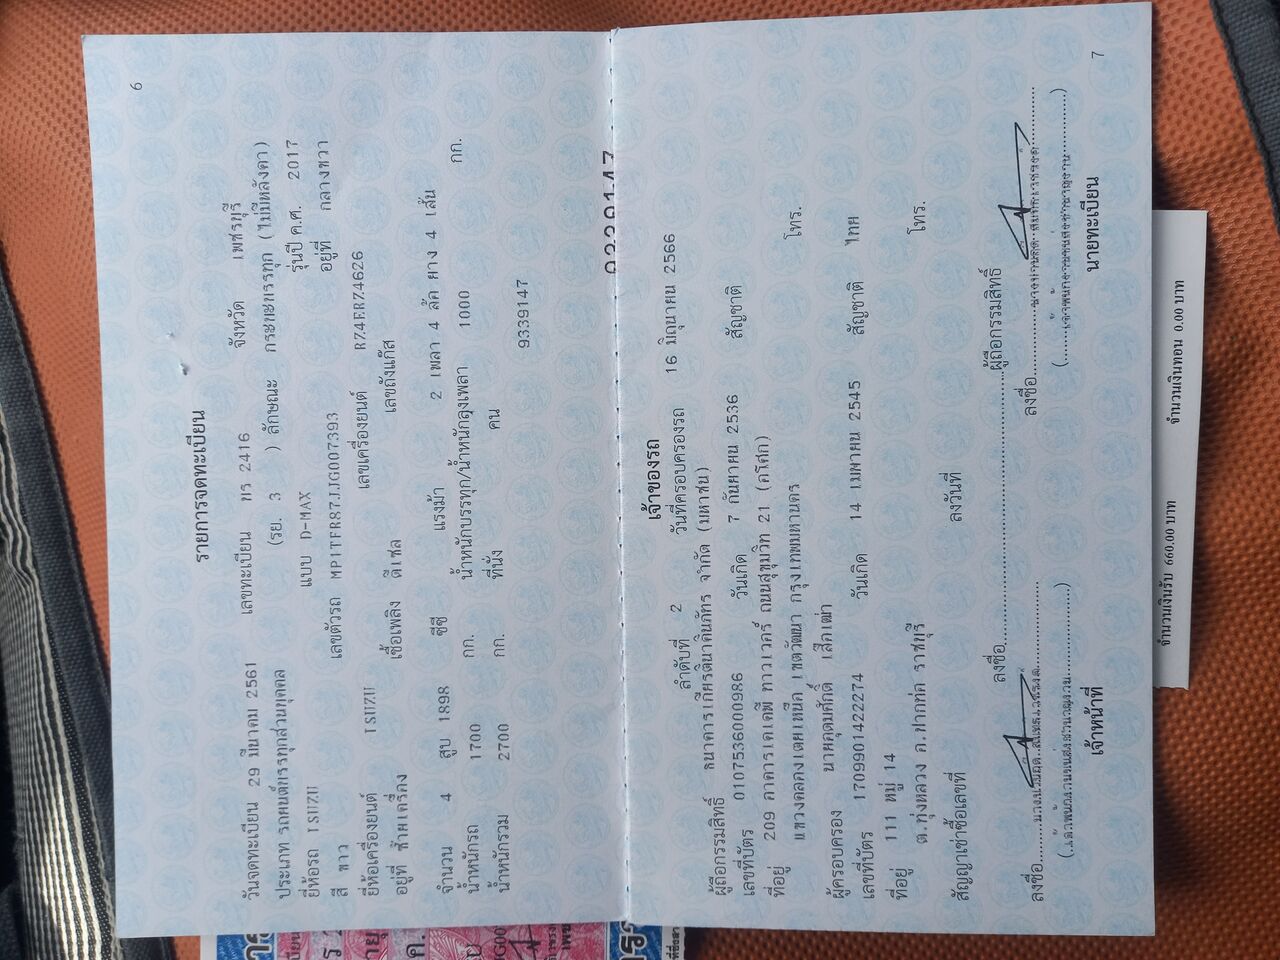 6
รายการจดทะเบียน
วันจดทะเบียน 29 มีนาคม 2561 เลขทะเบียน 2416 จังหวัด เพชรบุรี
ประเภท รถยนต์บรรทุกส่วนบุคคล (รย. 3 ) ลักษณะ กระบะบรรทุก (ไม่มีหลังคา)
ยี่ห้อรถ ISUZU แบบ D-MAX รุ่นปี ค.ศ. 2017
สี ขาว เลขตัวรถ MP1TFR87JJG007393 อยู่ที่ กลางขวา
ยี่ห้อเครื่องยนต์ ISUZU เลขเครื่องยนต์ RZ4ERZ4626
อยู่ที่ ซ้ายเครื่อง เชื้อเพลิง ดีเซล เลขถังแก๊ส
จำนวน 4 สูบ 1898 ซีซี แรงม้า 2 เพลา 4 ล้อ ยาง 4 เส้น
น้ำหนักรถ 1700 กก. น้ำหนักบรรทุก/น้ำหนักลงเพลา 1000 กก.
น้ำหนักรวม 2700 กก. ที่นั่ง คน
9339147
เจ้าของรถ
ลำดับที่ 2 วันที่ครอบครองรถ 16 มิถุนายน 2566
ผู้ถือกรรมสิทธิ์ ธนาคารเกียรตินาคินภัทร จำกัด (มหาชน)
เลขที่บัตร 0107536000986 วันเกิด 7 กันยายน 2536 สัญชาติ
ที่อยู่ 209 อาคารเคเคพี ทาวเวอร์ ถนนสุขุมวิท 21 (อโศก)
แขวงคลองเตยเหนือ เขตวัฒนา กรุงเทพมหานคร โทร.
ผู้ครอบครอง นายอุดมศักดิ์
เลขที่บัตร 1709901422274 วันเกิด 14 เมษายน 2545 สัญชาติ ไทย
ที่อยู่ 111 หมู่ 14
ต.ทุ่งหลวง อ.ปากท่อ ราชบุรี โทร.
สัญญาเช่าซื้อเลขที่ ลงวันที่
ลงชื่อ ผู้ถือกรรมสิทธิ์
ลงชื่อ ลงชื่อ
เจ้าหน้าที่ นายทะเบียน
7
จำนวนเงินรับ 660.00 บาท จำนวนเงินทอน 0.00 บาท